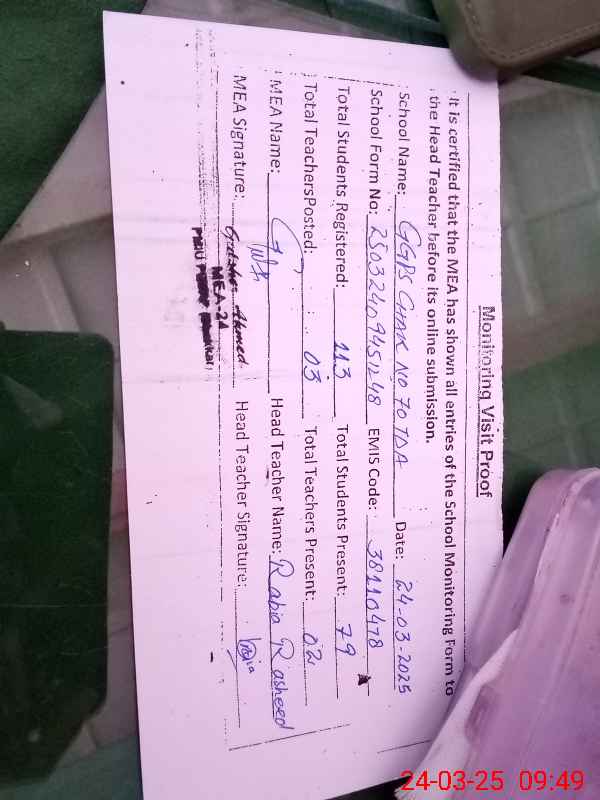 Monitoring Visit Proof
It is certified that the MEA has shown all entries of the School Monitoring Form to
the Head Teacher before its online submission.
School Name: GGPS Chak No 70 TDA Date: 24-03-2025
School Form No: 25032409451248 EMIS Code: 38110478
Total Students Registered: 113 Total Students Present: 79
Total TeachersPosted: 03 Total Teachers Present: 02
MEA Name: Head Teacher Name: Rabia Rasheed
MEA Signature: Ahmed Head Teacher Signature: Rabia
MEA-24
24-03-25 09:49